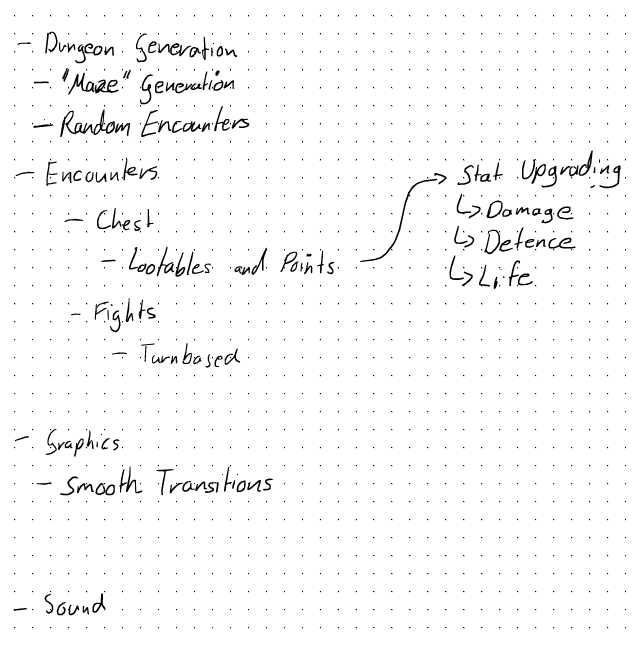 - Dungeon Generation
- "Maze" Generation
- Random Encounters
- Encounters
- Chest
- Lootables and Points
- Fights
- Turnbased
Stat Upgrading
Damage
Defence
Life
- Graphics
- Smooth Transitions
- Sound